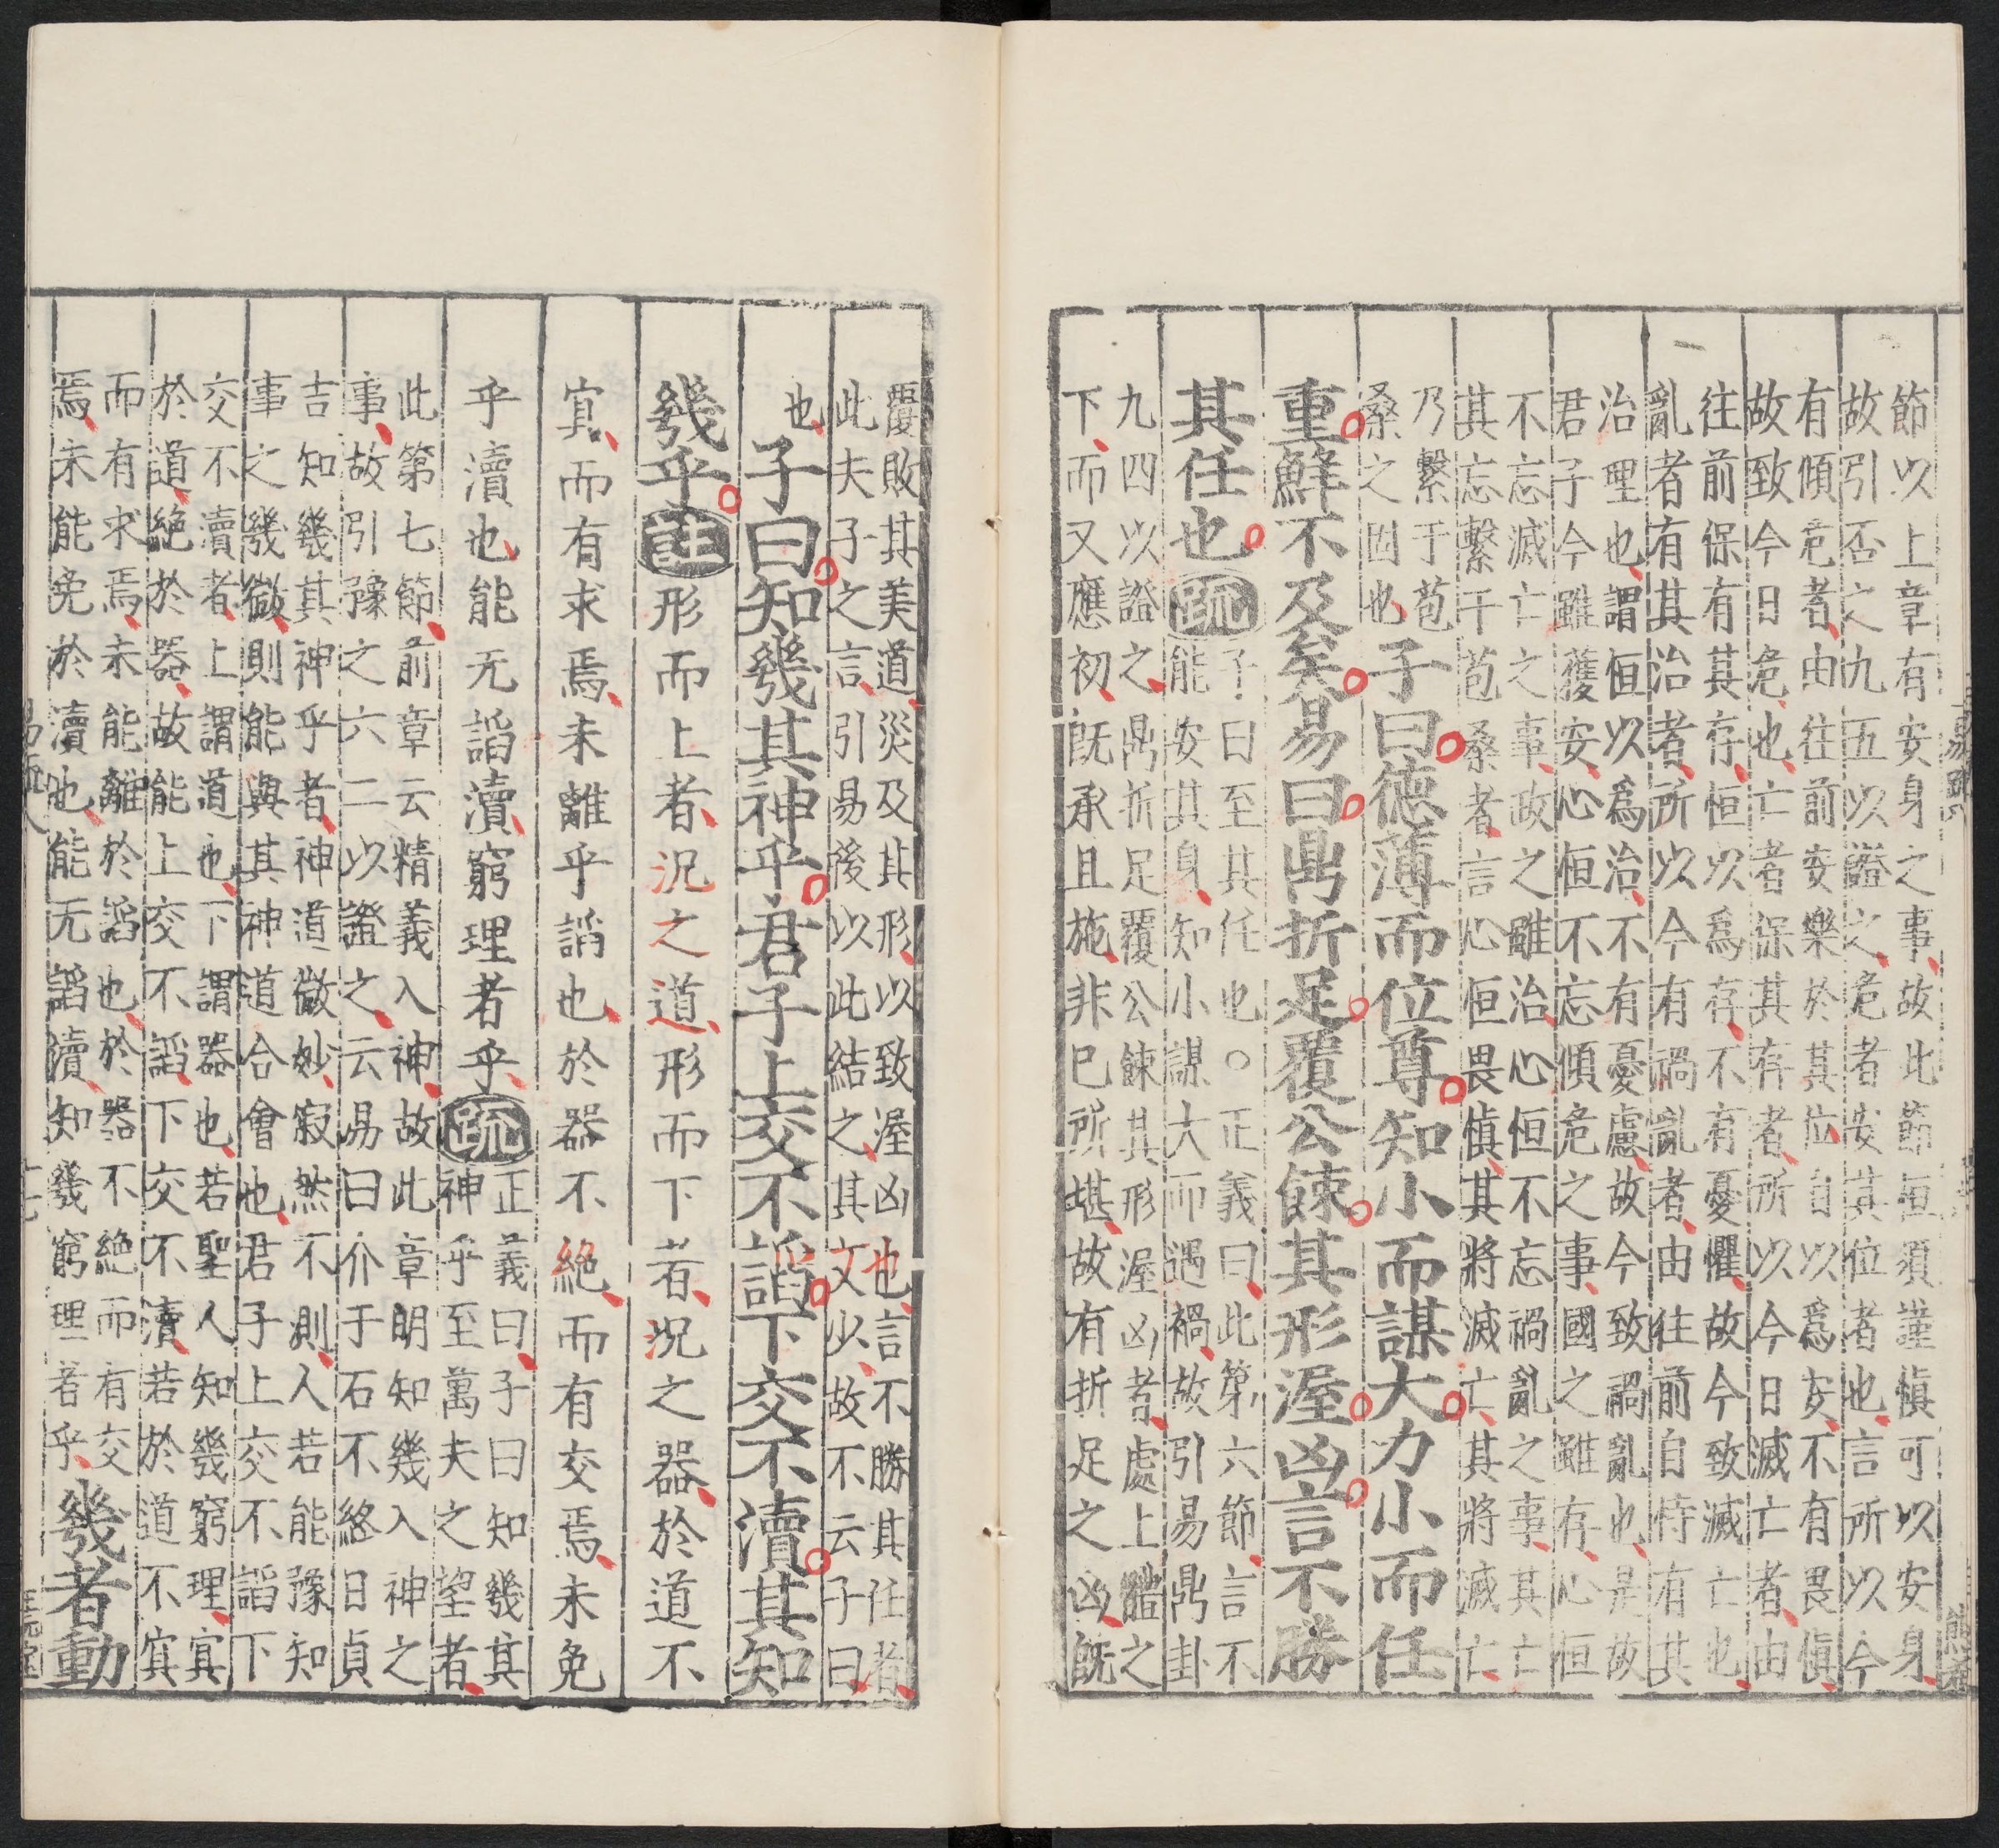 節以上章有安身之事故此節恒須謹慎可以安身
故引否之九五以證之危者安其位者也言所以今
有傾危者由往前安樂於其位自以爲安不有畏愼
故致今日危也亡者保其存者所以今日滅亡者由
往前保有其存恒以爲存不有憂懼故今致滅亡也
亂者有其治者所以今有禍亂者由往前自恃有其
治理也謂恒以爲治不有憂慮故今致禍亂也是故
君子今雖獲安心恒不忘傾危之事國之雖存心恒
不忘滅亡之事政之雖治心恒不忘禍亂之事其亡
其忘繫于苞桑者言心恒畏愼其將滅亡其將滅亡
乃繫于苞
桑之固也
子曰德薄而位尊知小而謀大力小而任
重鮮不及矣易曰鼎折足覆公餗其形渥凶言不勝
其任也
疏
子曰至其任也○正義曰此第六節言不
能安其身知小謀大而遇禍故引易鼎卦
九四以證之鼎折足覆公餗其形渥凶者處上體之
下而又應初旣承且施非已所堪故有折足之凶旣
覆敗其美道災及其形以致渥凶也言不勝其任者
此夫子之言引易後以此結之其文少故不云子曰
也
子曰知幾其神乎君子上交不諂下交不瀆其知
幾乎
註
形而上者況之道形而下者況之器於道不
冥而有求焉未離乎諂也於器不絕而有交焉未免
乎瀆也能无諂瀆窮理者乎
疏
正義曰子曰知幾其
神乎至萬夫之望者
此第七節前章云精義入神故此章明知幾入神之
事故引豫之六二以證之云易曰介于石不終日貞
吉知幾其神乎者神道微妙寂然不測人若能豫知
事之幾微則能與其神道合會也君子上交不諂下
交不瀆者上謂道也下謂器也若聖人知幾窮理冥
於道絕於器故能上交不諂下交不瀆若於道不冥
而有求焉未能離於諂也於器不絕而有交
焉未能免於瀆也能无諂瀆知幾窮理者乎
幾者動